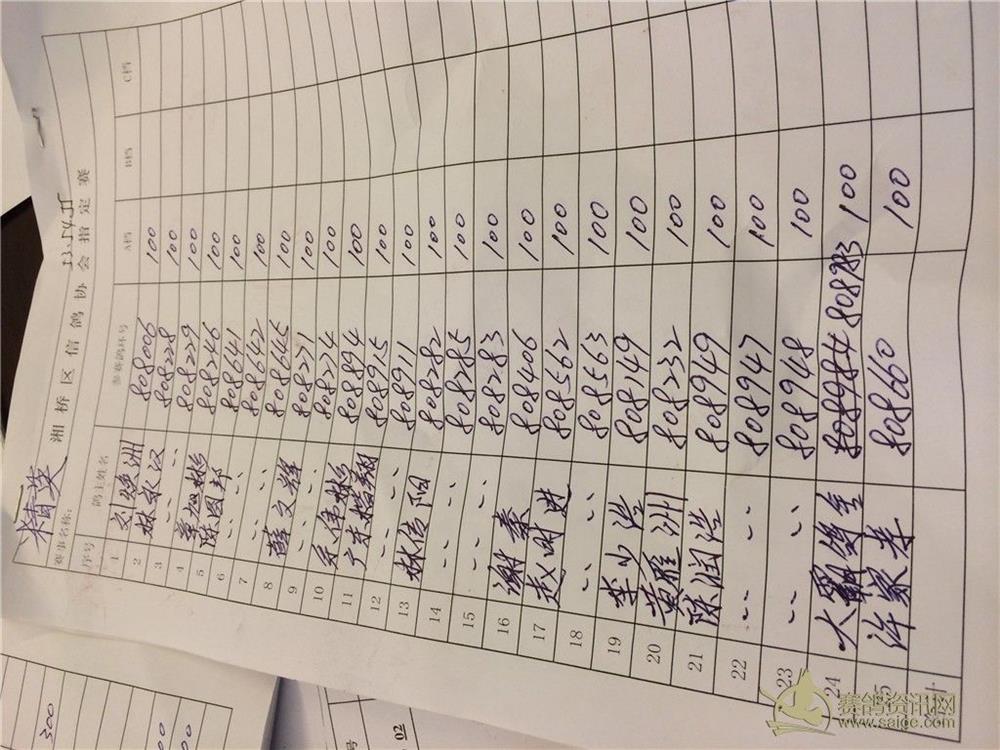 精英
赛事名称: 湘桥区信鸽协会指定赛
序号 鸽主姓名 参赛鸽环号 A档 B档 C档
1 刘焕洲 808006 100
2 林永汉 808228 100
3 〃 808229 100
4 808246 100
5 陈国邦 808641 100
6 〃 808642 100
7 〃 808645 100
8 薛文辉 808271 100
9 〃 808274 100
10 808894 100
11 808915 100
12 〃 808911 100
13 林传阳 808282 100
14 〃 808285 100
15 〃 808283 100
16 谢泰 808406 100
17 赵时进 808562 100
18 〃 808563 100
19 李少浩 808149 100
20 黄雅洲 808232 100
21 陈润浩 808949 100
22 〃 808947 100
23 〃 808948 100
24 808983 100
25 许家孝 808660 100
300
00
号
02
赛鸽资讯网
www.saige.com